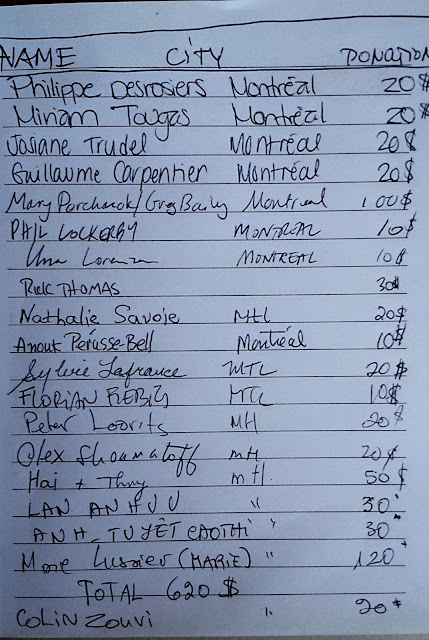 NAME CITY DONATION
Philippe Desrosiers Montréal 20$
Miriam Tougas Montréal 20$
Josiane Trudel Montréal 20$
Guillaume Carpentier Montréal 20$
Mary Montreal 100$
PHIL LOCKERBY MONTREAL 10$
Una MONTREAL 10$
RICK THOMAS 30$
Nathalie Savoie Mtl 20$
Anouk Pérusse-Bell Montréal 10$
Sylvie Lafrance MTL 20$
FLORIAN MTL 10$
Peter Mtl 20$
Alex Shoumatoff mtl 20$
Hai + Thuy mtl. 50$
LAN ANH VU " 30"
ANH-TUYẾT CAOTHI " 30"
Mme Lussier (MARIE) " 120"
TOTAL 620$
COLIN ZOUVI " 20"